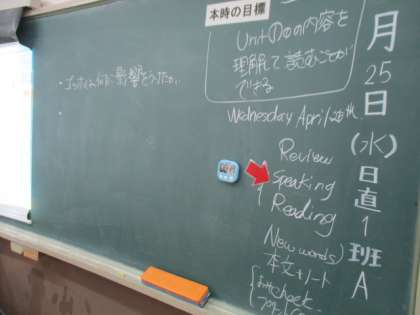 本時の目標
Unit1①の内容を
理解して読むことが
できる
・ゴッホは何に影響をうけたか。
Wednesday April 25th
Review
Speaking
Reading
New words
本文+ノート
check
月
25
日
(水)
日直
1
班
A